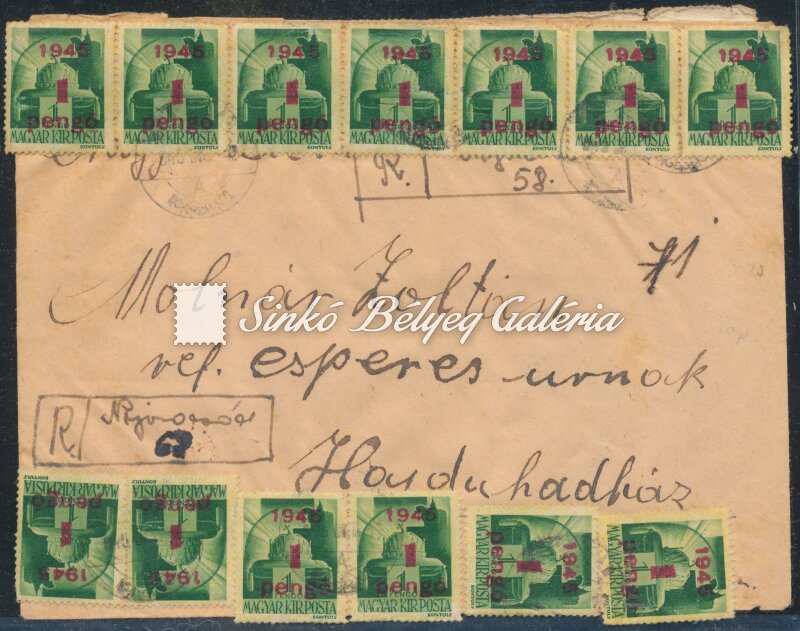 1945 1945 1945 1945 1945 1945 1945
1 1 1 1 1 1 1
pengő pengő pengő pengő pengő pengő pengő
MAGYAR KIR. POSTA MAGYAR KIR. POSTA MAGYAR KIR. POSTA MAGYAR KIR. POSTA MAGYAR KIR. POSTA MAGYAR KIR. POSTA MAGYAR KIR. POSTA
KONTULY KONTULY KONTULY KONTULY KONTULY KONTULY KONTULY
A
R.
58.
Molnár Zoltán 71
Sinkó Bélyeg Galéria
ref. esperes urnak
R.
62
Hajduhadház
1945 1945 1945 1945 1945 1945
1 1 1 1 1 1
pengő pengő pengő pengő pengő pengő
PENGŐ PENGŐ
MAGYAR KIR. POSTA MAGYAR KIR. POSTA MAGYAR KIR. POSTA MAGYAR KIR. POSTA MAGYAR KIR. POSTA MAGYAR KIR. POSTA
KONTULY KONTULY KONTULY KONTULY KONTULY KONTULY